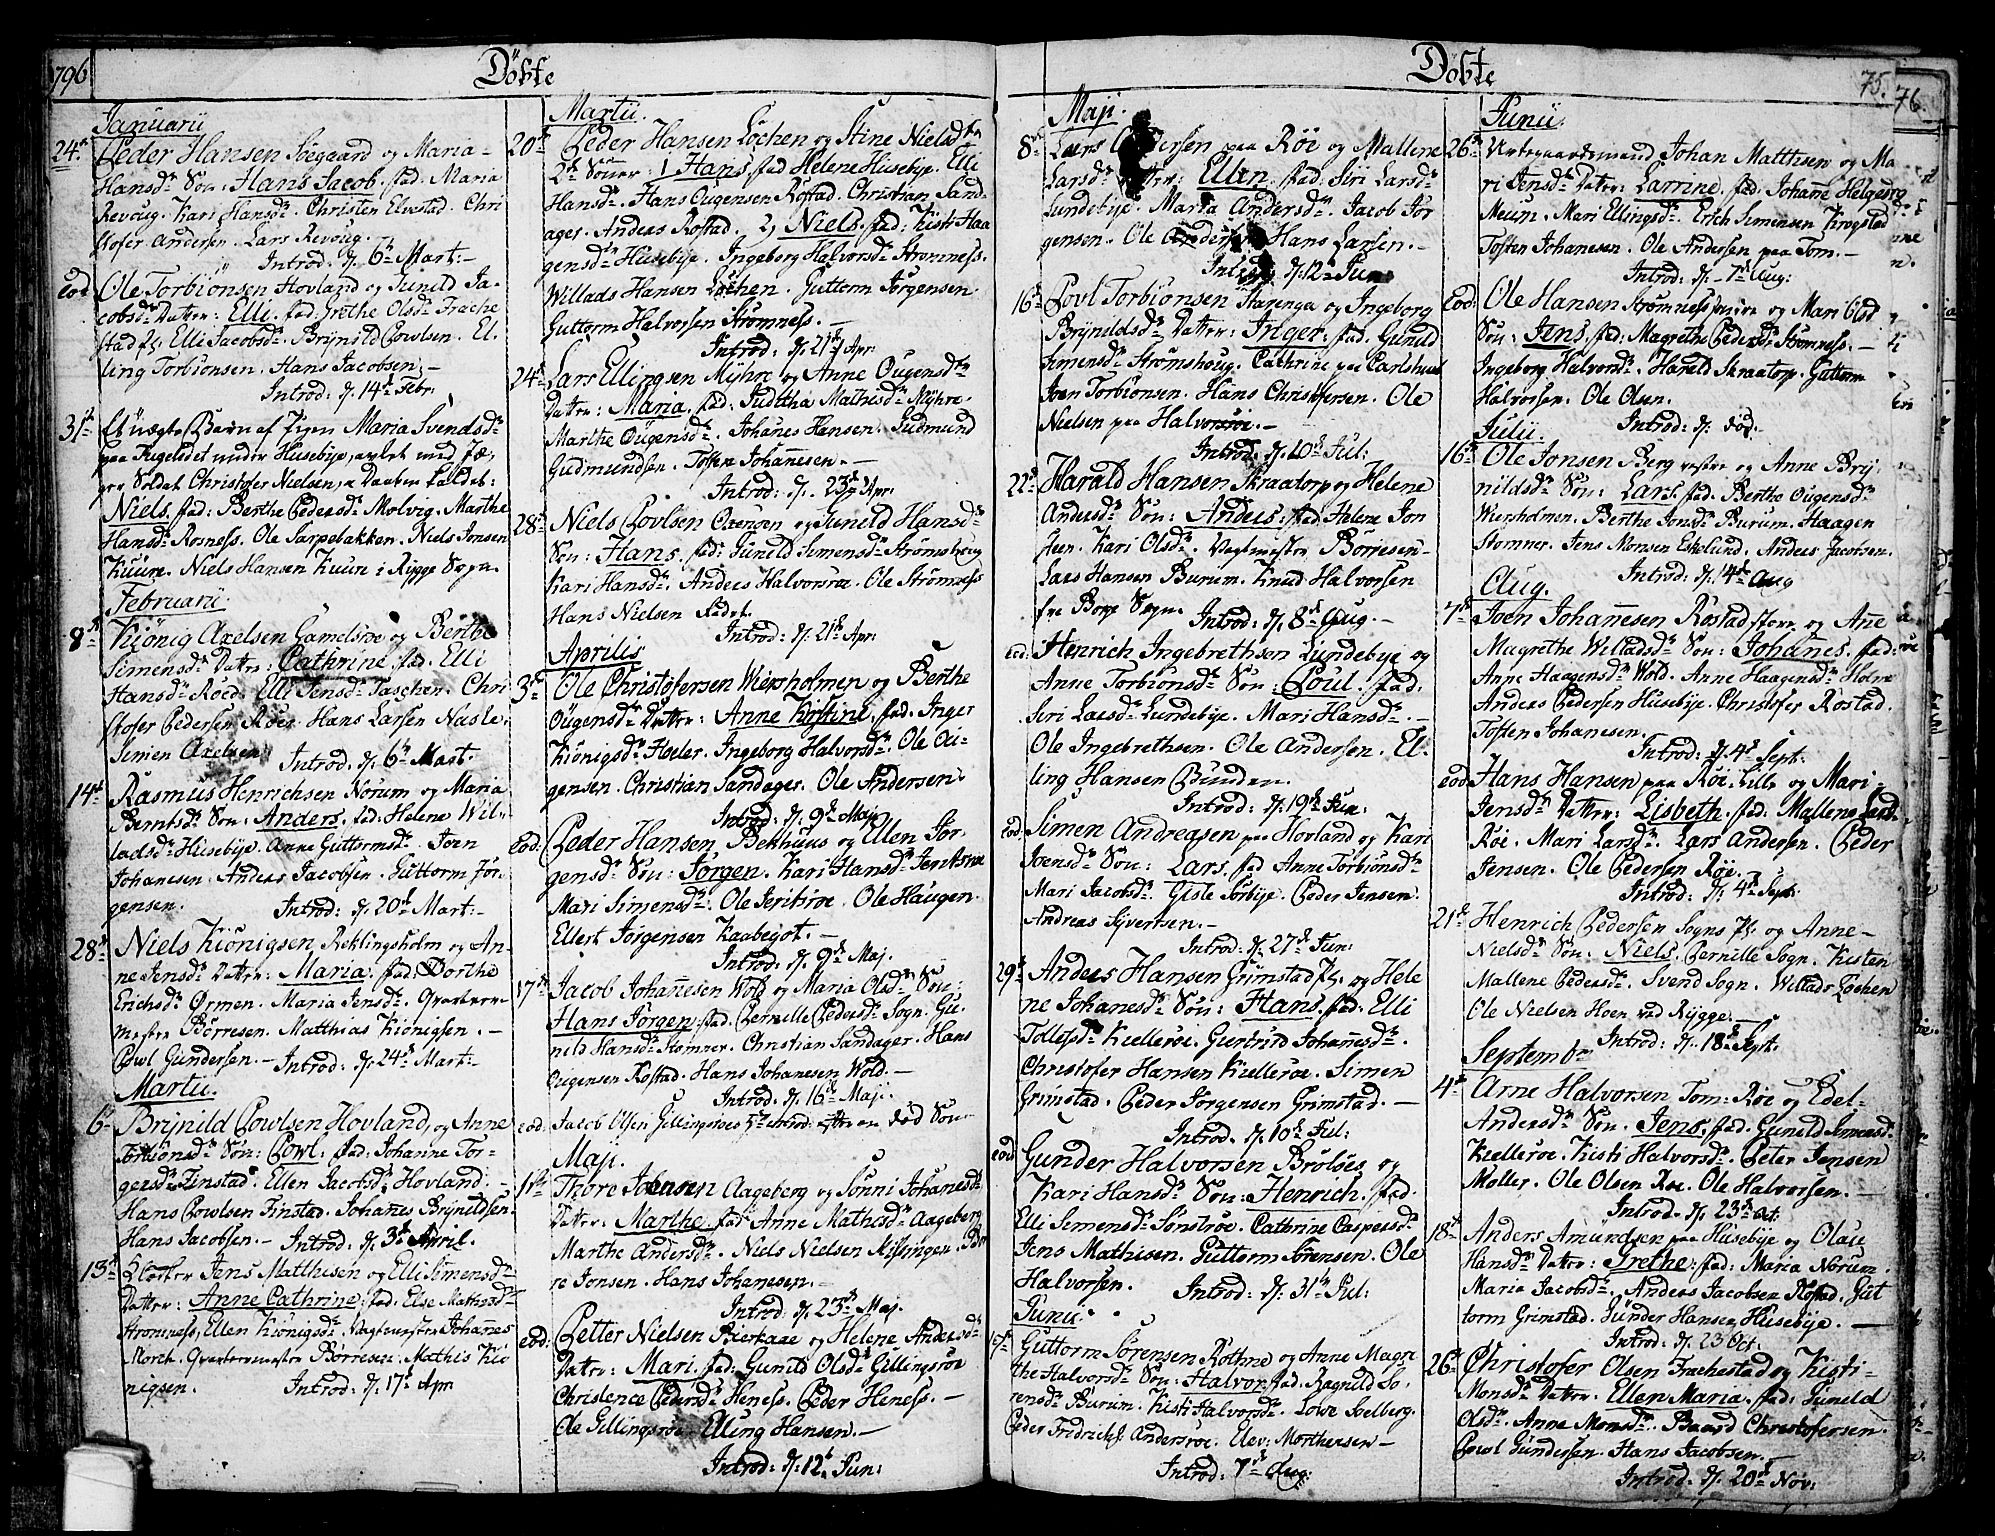 1796
Döbte
Januarii
24de Peder Hansen Soegaard og Maria
Hansdr Sön: Hans Jacob. fad: Maria
Revoug. Kari Hansdr. Christen Elvestad. Chri
stofer Andersen. Lars Revoug.
Introd: d. 6te Mart:
Eod Ole Torbiönsen Hovland og Gunild Ja-
cobsdr Datter: Elli. fad: Grethe Olsdr Frache
stad pl. Elli Jacobsdr. Brÿnild Povlsen. El
ling Torbiönsen. Hans Jacobsen.
Introd: d. 14de Febr.
31te Et uægte Barn af Pigen Maria Svendsdr
paa Fugeledet under Husebÿe, avlet med Jæ-
ger Soldat Christofer Nielsen, i Daaben kaldet:
Niels. fad: Berthe Pedersdr Molvig. Marthe
Hansdr Rosness. Ole Sarpebakken. Niels Jonsen
Kuure. Niels Hansen Kuure i Rÿgge Sogn.
Februarii
8de Kiönig Axelsen Gamelsröe og Berthe
Simensdr Datter: Cathrine. fad. Elli
Hansdr Röed. Elli Jensdr Taschen. Chri
stofer Pedersen Röer. Hans Larsen Naske.
Simen Axelsen. Introd: d. 6te Mart.
14de Rasmus Henrichsen Norum og Maria
Berntsdr Sön: Anders. fad: Helene Wil-
ladsdr Husebÿe. Anne Guttormsdr. Joen
Johanesen. Anders Jacobsen. Guttorm Jör-
gensen. Introd: d. 20de Mart:
28de Niels Kiönigsen Reklingsholm og An-
ne Jensdr Datter: Maria. fad: Dorthe
Erichsdr Ørmen. Maria Jensdr. Qvarteer-
mester Börresen. Matthias Kiönigsen.
Povl Gundersen. Introd: d. 24de Mart:
Martii.
6te Brÿnild Povlsen Hovland, og Anne
Torbionsdr Sön: Povl. fad: Johanne Tor-
gersdr Finstad. Ellen Jacobsdr Hovland.
Hans Povlsen Finstad. Johanes Brÿnildsen.
Hans Jacobsen. Introd: d. 3de April.
13de Klocker Jens Matthisen og Elli Simensdr
Datter: Anne Cathrine. fad. Else Mathisdr
Strömness. Ellen Kiönigsdr. Vagtmester Johannes
Morch. Qvartermester Börresen. Mathis Kiö
nigsen. Introd: d. 17de Apr
Martii.
20de Peder Hansen Löchen og Stine Nielsdtr
2de Sönner: 1 Hans. fad Helene Husebÿe. Elli
Hansdr. Hans Ougensen Rostad. Christian Sand-
ager. Anders Rostad. 2) Niels. fad: Kisti Haa
gensdr Husebÿe. Ingeborg Halvorsdr Stromness.
Willads Hansen Löchen. Guttorm Jörgensen
Guttorm Halvorsen Strömness.
Introd: d. 21de Apr.
24de Lars Ellingsen Mÿhre og Anne Ougensdtr
Datter: Maria. fad: Juditha Mathisdr Mÿhre.
Marthe Ougensdr. Johanes Hansen. Gudmund
Gudmundsen. Tosten Johannesen.
Introd: d. 23de Apr.
28de Niels Povlsen Oxenöen og Gunild Hansdr
Sön: Hans. fad: Gunild Simensdr Strömshoug
Kari Hansdr. Anders Halvorsröe. Ole Strömness
Hans Nielsen ladet.
Introd: d. 21de Apr.
Aprilis
3de Ole Christofersen Wiersholmen og Berthe
Ougensdr Datter: Anne Kirstine. fad. Inger
Kiönigsdr Hoeler. Ingeborg Halvorsdr. Ole Ou-
gensen. Christian Sandager. Ole Andersen
Introd: d. 9de Maji
Eod: Peder Hansen Bekhuus og Ellen Jör-
gensdr Sön: Jörgen. Kari Hansdr Jeriksröe
Mari Simensdr. Ole Jeriksröe. Ole Haugen.
Ellert Jörgensen Kaabegot.
Introd: d. 9de Maj.
17de Jacob Johannesen Wold og Maria Olsdr Sön:
Hans Jörgen. fad. Pernille Pedersdr Sogn. Gu-
nild Hansdr Stomner. Christian Sandager. Hans
Ougensen Rostad. Hans Johanesen Wold.
Introd: d. 16de Maji.
eod: Jacob Olsen Gillingsröes introd. efter en död Sön
Maji.
1ste Thore Johnsen Aageberg og Sönni Johanesdr
Datter: Marthe. fad. Anne Mathisdr Aageberg
Marthe Andersdr. Niels Nielsen Kissingen. Tor
re Jonsen. Hans Johanesen.
Introd: d. 23de Maj.
eod: Petter Nielsen Bierkaae og Helene Andersdr
Datter: Mari. fad: Gunild Olsdr Gillingsröe
Christence Pedersdr Heness. Peder Heness.
Ole Gillingsröe. Elling Hansen.
Introd: d. 12te Jun:
Döbte
75.
76.
Maji.
8de Lars Andersen paa Röi og Mallene
Larsdr Datter: Ellen. fad: Siri Larsdr
Lundebÿe. Maria Andersdr. Jacob Jör
gensen. Ole Andersen. Hans Larsen.
Introd: d. 12te Jun:
16de Povl Torbiönsen Harenga og Ingeborg
Brÿnildsdr Datter: Inger. fad. Gunild
Simensdr Strömshoug. Cathrine paa Carlshuus
Joen Torbiönsen. Hans Christofersen. Ole
Nielsen paa Halvorsröe.
Introd: d. 10de Jul:
22de Harald Hansen Skraatorp og Helene
Andersdr Sön: Anders. fad Helene Jon
steen. Kari Olsdr. Vagtmester Börresen.
Lars Hansen Burum. Knud Halvorsen
fra Borge Sogn. Introd: d. 8de Aug.
eod: Henrich Ingebrethsen Lundebÿe og
Anne Torbionsdr Sön: Poul. fad.
Siri Larsdr Lundebÿe. Mari Hansdr.
Ole Ingebrethsen. Ole Andersen. El-
ling Hansen Bunden.
Introd: d. 19de Jun:
eod: Simen Andreasen paa Hovland og Kari
Joensdr Sön: Lars. fad Anne Torbionsdr
Mari Jacobsdr. Gisle Sorbÿe. Peder Jensen.
Andreas Sÿvertsen.
Introd: d. 27de Jun:
29de Anders Hansen Grimstad pl. og Hele
ne Johanesdr Sön: Hans. fad: Elli
Tollefsdr Kielleröe. Gurtrud Johannesdr.
Christofer Hansen Kielleröe. Simen
Grimstad. Peder Jörgensen Grimstad.
Introd. d. 10de Jul:
eod Gunder Halvorsen Brölöes og
Kari Hansdr Sön: Henrich. fad.
Elli Simensdr Sönströe. Cathrine Caspersdr
Jens Mathisen. Guttorm Sörensen. Ole
Halvorsen. Introd: d. 31te Jul:
Junii.
Guttorm Sörensen Rothne og Anne Magre
the Halvorsdr Sön: Halvor. fad. Ragnild Sö-
rensdr Burum. Kisti Halvorsdr. Lowe Soelberg.
Peder Fredrichs. Andersröe. Elev: Morthensen
Introd: 7de Aug:
Junii.
26de Ustegaardsmand Johan Matthisen og Ma
ri Jensdr Datter: Larrine. fad. Johanne Helgesrg
Meum. Mari Ellingsdr. Erich Simensen Krogstad
Tosten Johanesen. Ole Andersen paa Tom.
Introd: d. 7de Aug:
Eod: Ole Hansen Strömness nire og Mari Olsd
Sön: Jens. fad: Magrethe Pedersdr Strömness.
Ingeborg Halvorsdr. Harald Skraatorp. Guttorm
Halvorsen. Ole Olsen.
Introd: d. Eod:
Julii.
16de Ole Jonsen Berg vestre og Anne Brÿ-
nildsdr Sön: Lars. fad. Berthe Ougensdr
Wiersholmen. Berthe Jonsdr Burum. Haagen
Stomner. Jens Monsen Eskelund. Anders Jacobsen.
Introd: d. 14de Aug
Aug.
7de Joen Johannesen Rostad store og Ane
Magrethe Willadsdr Sön: Johanes. fad:
Anne Haagensdr Wold. Anne Haagensdr Holme
Anders Pedersen Husebÿe. Christofer Rostad.
Tosten Johanesen.
Introd: d. 4de Sept.
eod Hans Hansen paa Röi lille og Mari
Jensdr Datter: Lisbeth. fad. Mallene Larsdr
Röi. Mari Larsdr. Lars Andersen. Peder
Jensen. Ole Pedersen Röe.
Introd: d. 4de Sept.
21de Henrich Pedersen Sogns pl. og Anne
Nielsdr Sön: Niels. Pernille Sogn. Kisten
Mallene Pedersdr. Svend Sogn. Willads Lochen
Ole Nielsen Hoen ved Rÿgge.
Introd: d. 18de Sept.
Septembr
4de Arne Halvorsen Tom: Röe og Edel-
Andersdr Sön. Jens. fad. Gunild Simensdr
Kielleröe. Kisti Halvorsdr. Peter Jensen
Moller. Ole Olsen Röe. Ole Halvorsen.
Introd. d. 23de oct.
18de Anders Amundsen paa Husebÿe og Olau
Hansdr Datter: Grethe. fad: Maria Norum.
Maria Jacobsdr. Anders Jacobsen Rostad. Gut
torm Grimstad. Gunder Hansen Husebÿe.
Introd: d. 23 Oct.
26de Christofer Olsen Frachestad og Kisti
Monsdr Datter: Ellen Maria. fad: Guneld
Olsdr. Anne Monsdr. Baard Christofersen.
Povl Gundersen. Hans Jacobsen.
Introd: d. 20de Nov: